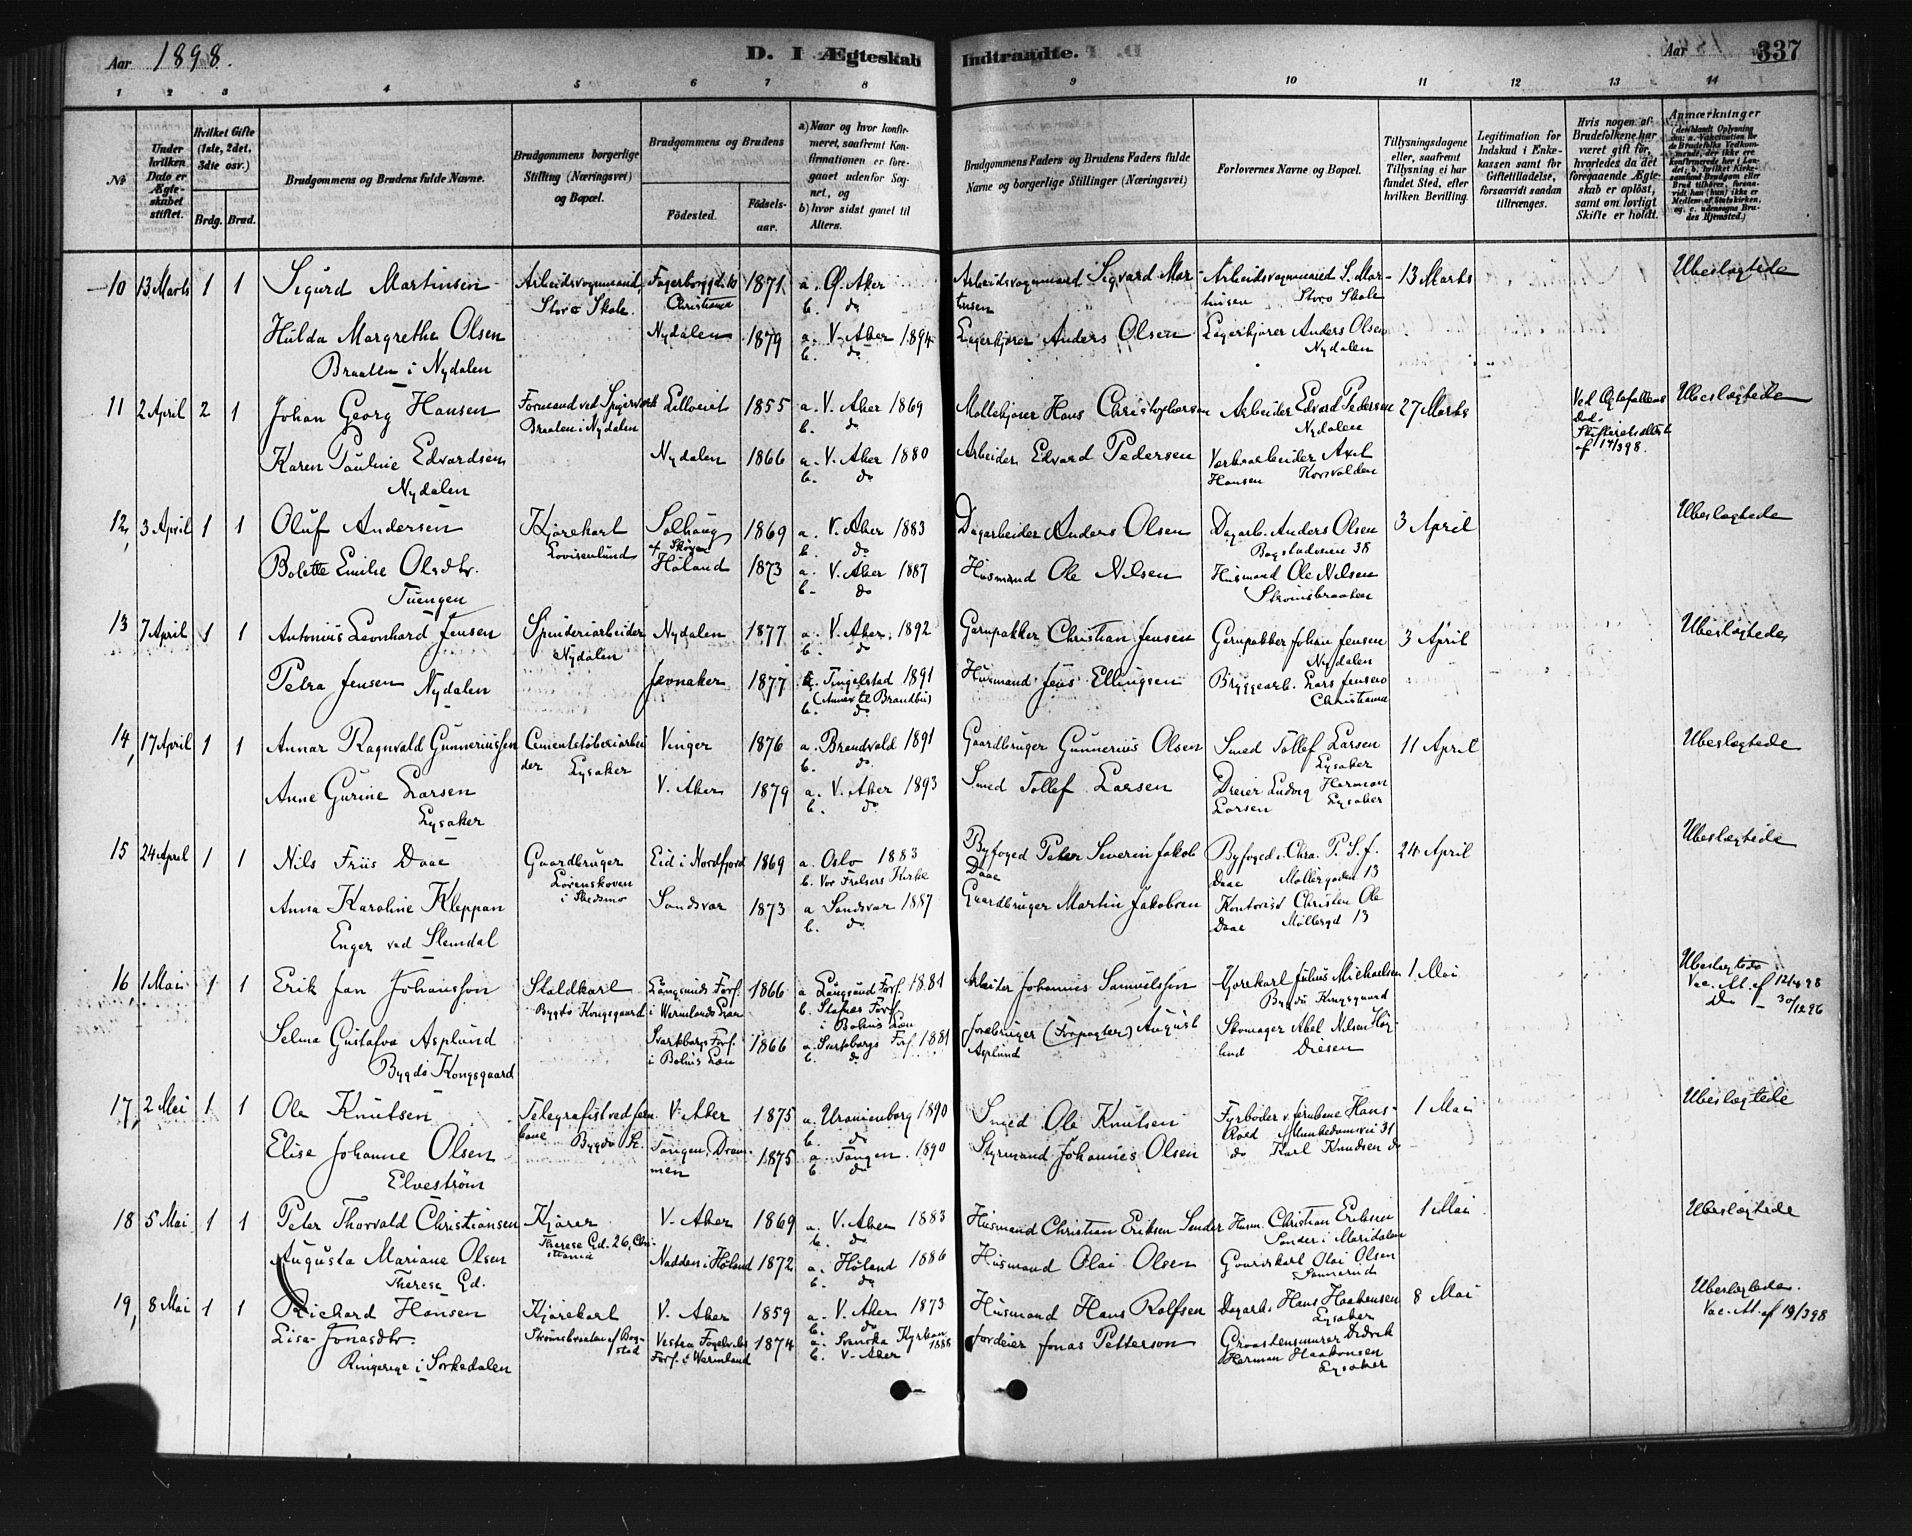 Aar 1898. D. I Ægteskab Indtraadte. Aar 337
1 2 3 4 5 6 7 8 9 10 11 12 13 14
№
Under hvilken Dato er Ægteskabet stiftet.
Hvilket Gifte (1ste, 2det, 3die osv.)
Brdg. Brud.
Brudgommens og Brudens fulde Navne.
Brudgommens borgerlige Stilling (Næringsvei) og Bopæl.
Brudgommens og Brudens
Fødested. Fødselsaar.
a) Naar og hvor konfirmeret, saafremt Konfirmationen er foregaaet udenfor Sognet, og
b) hvor sidst gaaet til Alters.
Brudgommens Faders og Brudens Faders fulde Navne og borgerlige Stillinger (Næringsvei)
Forlovernes Navne og Bopæl.
Tillysningsdagene eller, saafremt Tillysning ei har fundet Sted, efter hvilken Bevilling.
Legitimation for Indskud i Enkekassen samt for Giftetilladelse, forsaavidt saadan tiltrænges.
Hvis nogen af Brudefolkene har været gift før, hvorledes da det foregaaende Ægteskab er opløst, samt om lovligt Skifte er holdt.
Anmærkninger
10 13 Marts 1 1 Sigurd Martinsen Arbeidsvognmand, Storo Skole. Fagerborggd. 10 Christiania 1871 a. Ø. Aker b. do Arbeidsvognmand Sigvard Martinsen Arbeidsvognmand S. Martinsen Storo Skole 13 Marts Ubeslægtede
Hulda Margrethe Olsen Braaten i Nydalen Nydalen 1879 a. V. Aker 1894 b. do Lagerkjører Anders Olsen Lagerkjører Anders Olsen Nydalen
11 2 April 2 1 Johan Georg Hansen Formand ved Spigerverk Braaten i Nydalen Lilloeiet 1855 a. V. Aker 1869 b. do Møllekjører Hans Christophersen Arbeider Edvard Pedersen Nydalen 27 Marts Ved Ægtefællens Død. Skifteretsattest af 14/3 98. Ubeslægtede
Karen Pauline Edvardsen Nydalen Nydalen 1866 a. V. Aker 1880 b. do Arbeider Edvard Pedersen Værksarbeider Axel Hansen Korsvolden
12, 3 April 1 1 Oluf Andersen Kjørekarl Lovisenlund Solhaug af Skøyen 1869 a. V. Aker 1883 b. do Dagarbeider Anders Olsen Dagarb. Anders Olsen Bogstadveien 38 3 April Ubeslægtede
Bolette Emilie Olsdtr. Tuengen Høland 1873 a. V. Aker 1887 b. do Husmand Ole Nilsen Husmand Ole Nilsen Strømsbraaten
13 7 April 1 1 Antonius Leonhard Jensen Spinderiarbeider Nydalen Nydalen 1877 a. V. Aker 1892 b. do Garnpakker Christian Jensen Garnpakker Johan Jensen Nydalen 3 April Ubeslægtede
Petra Jensen Nydalen Jævnaker 1877 a. Tingelstad 1891 (Annex til Brandbu) b. do Husmand Jens Ellingsen Bryggearb. Lars Jensen Christiania
14, 17 April 1 1 Annar Ragnvald Gunneriussen Cementstøberiarbeider Lysaker Vinger 1876 a. Brandvold 1891 b. do Gaardbruger Gunnerius Olsen Smed Tollef Larsen Lysaker 11 April Ubeslægtede
Anne Gurine Larsen Lysaker V. Aker 1879 a. V. Aker 1893 b. do Smed Tollef Larsen Dreier Ludvig Herman Larsen Lysaker
15 24 April 1 1 Nils Friis Daae Gaardbruger Lørenskoven i Skedsmo Eid i Nordfjord 1869 a. Oslo 1883 b. Vor Frelsers Kirke Byfoged Peter Severin Jakob Daae Byfoged i Chra. P. S. J. Daae Møllergaden 13 24 April Ubeslægtede
Anna Karoline Kleppan Enger ved Slemdal Sandsvær 1873 a Sandsvær 1887 b. do Gaardbruger Martin Jakobsen Kontorist Christen Ole Daae Møllergd 13
16, 1 Mai 1 1 Erik Jan Johansson Staldkarl Bygdø Kongsgaard Långsunds Förs. i Wermlands Län 1866 a Långsund Förs. 1881 b. Stafnäs Förs. i Bohus Län Arbeider Johannes Samuelsson Kjørekarl Julius Michaelsen Bygdø Kongsgaard 1 Mai Ubeslægtede Vac. At. af 12/4 98 Do – 30/12 96
Selma Gustafva Asplund Bygdø Kongsgaard Svarteborgs Förs. i Bohus Län 1866 a. Svarteborgs Förs. 1881 b. do Jordbruger (Forpagter) August Asplund Skomager Abel Nilsen Høglund Diesen
17, 2 Mai 1 1 Ole Knutsen Telegrafist ved Jernbane Bygdø St. V. Aker 1875 a. Uranienborg 1890 b. do Smed Ole Knutsen Fyrbøder v. Jernbane Hans Roed Munkedamsvei 31 1 Mai Ubeslægtede
Elise Johanne Olsen Elvestrøm Tangen, Drammen 1875 a Tangen 1890 b do Styrmand Johannes Olsen do Karl Knudsen do
18 5 Mai 1 1 Peter Thorvald Christiansen Kjører Therese Gd. 26, Christiania V. Aker 1869 a. V. Aker 1883 b. do Husmand Christian Eriksen Sander Husm. Christian Eriksen Sander i Maridalen 1 Mai Ubeslægtede
Augusta Mariane Olsen Therese Gd. Naddon i Høland 1872 a. Høland 1886 b. do Husmand Olai Olsen Gaardskarl Olai Olsen
19, 8 Mai 1 1 Richard Hansen Kjørekarl Strømsbraaten af Bogstad V. Aker 1859 a. V. Aker 1873 b. do Husmand Hans Rolfsen Dagarb. Hans Haakensen Lysaker 8 Mai Ubeslægtede. Vac. At. af 19/3 98
Lisa Jonasdtr. Ringerige i Sørkedalen Vestra Fogelviks Förs. i Wermland 1874 a. Svenska Kyrkan 1888 b. V. Aker Jordeier Jonas Petterson Graastensmurer Didrik Herman Haakonsen Lysaker